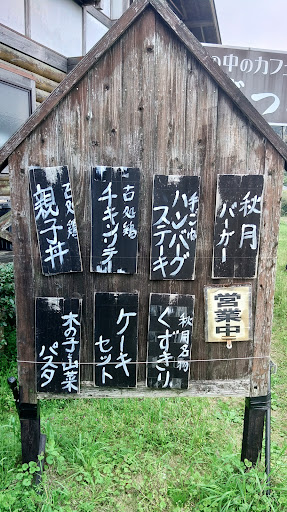 の中のカフェ
秋月
バーガー
チキン南
ハンバグ
ステーキ
古処鶏
チキンソテ
古処鶏
親子丼
営業中
秋月名物
くずきり
ケーキ
セット
木の子山菜
パスタ